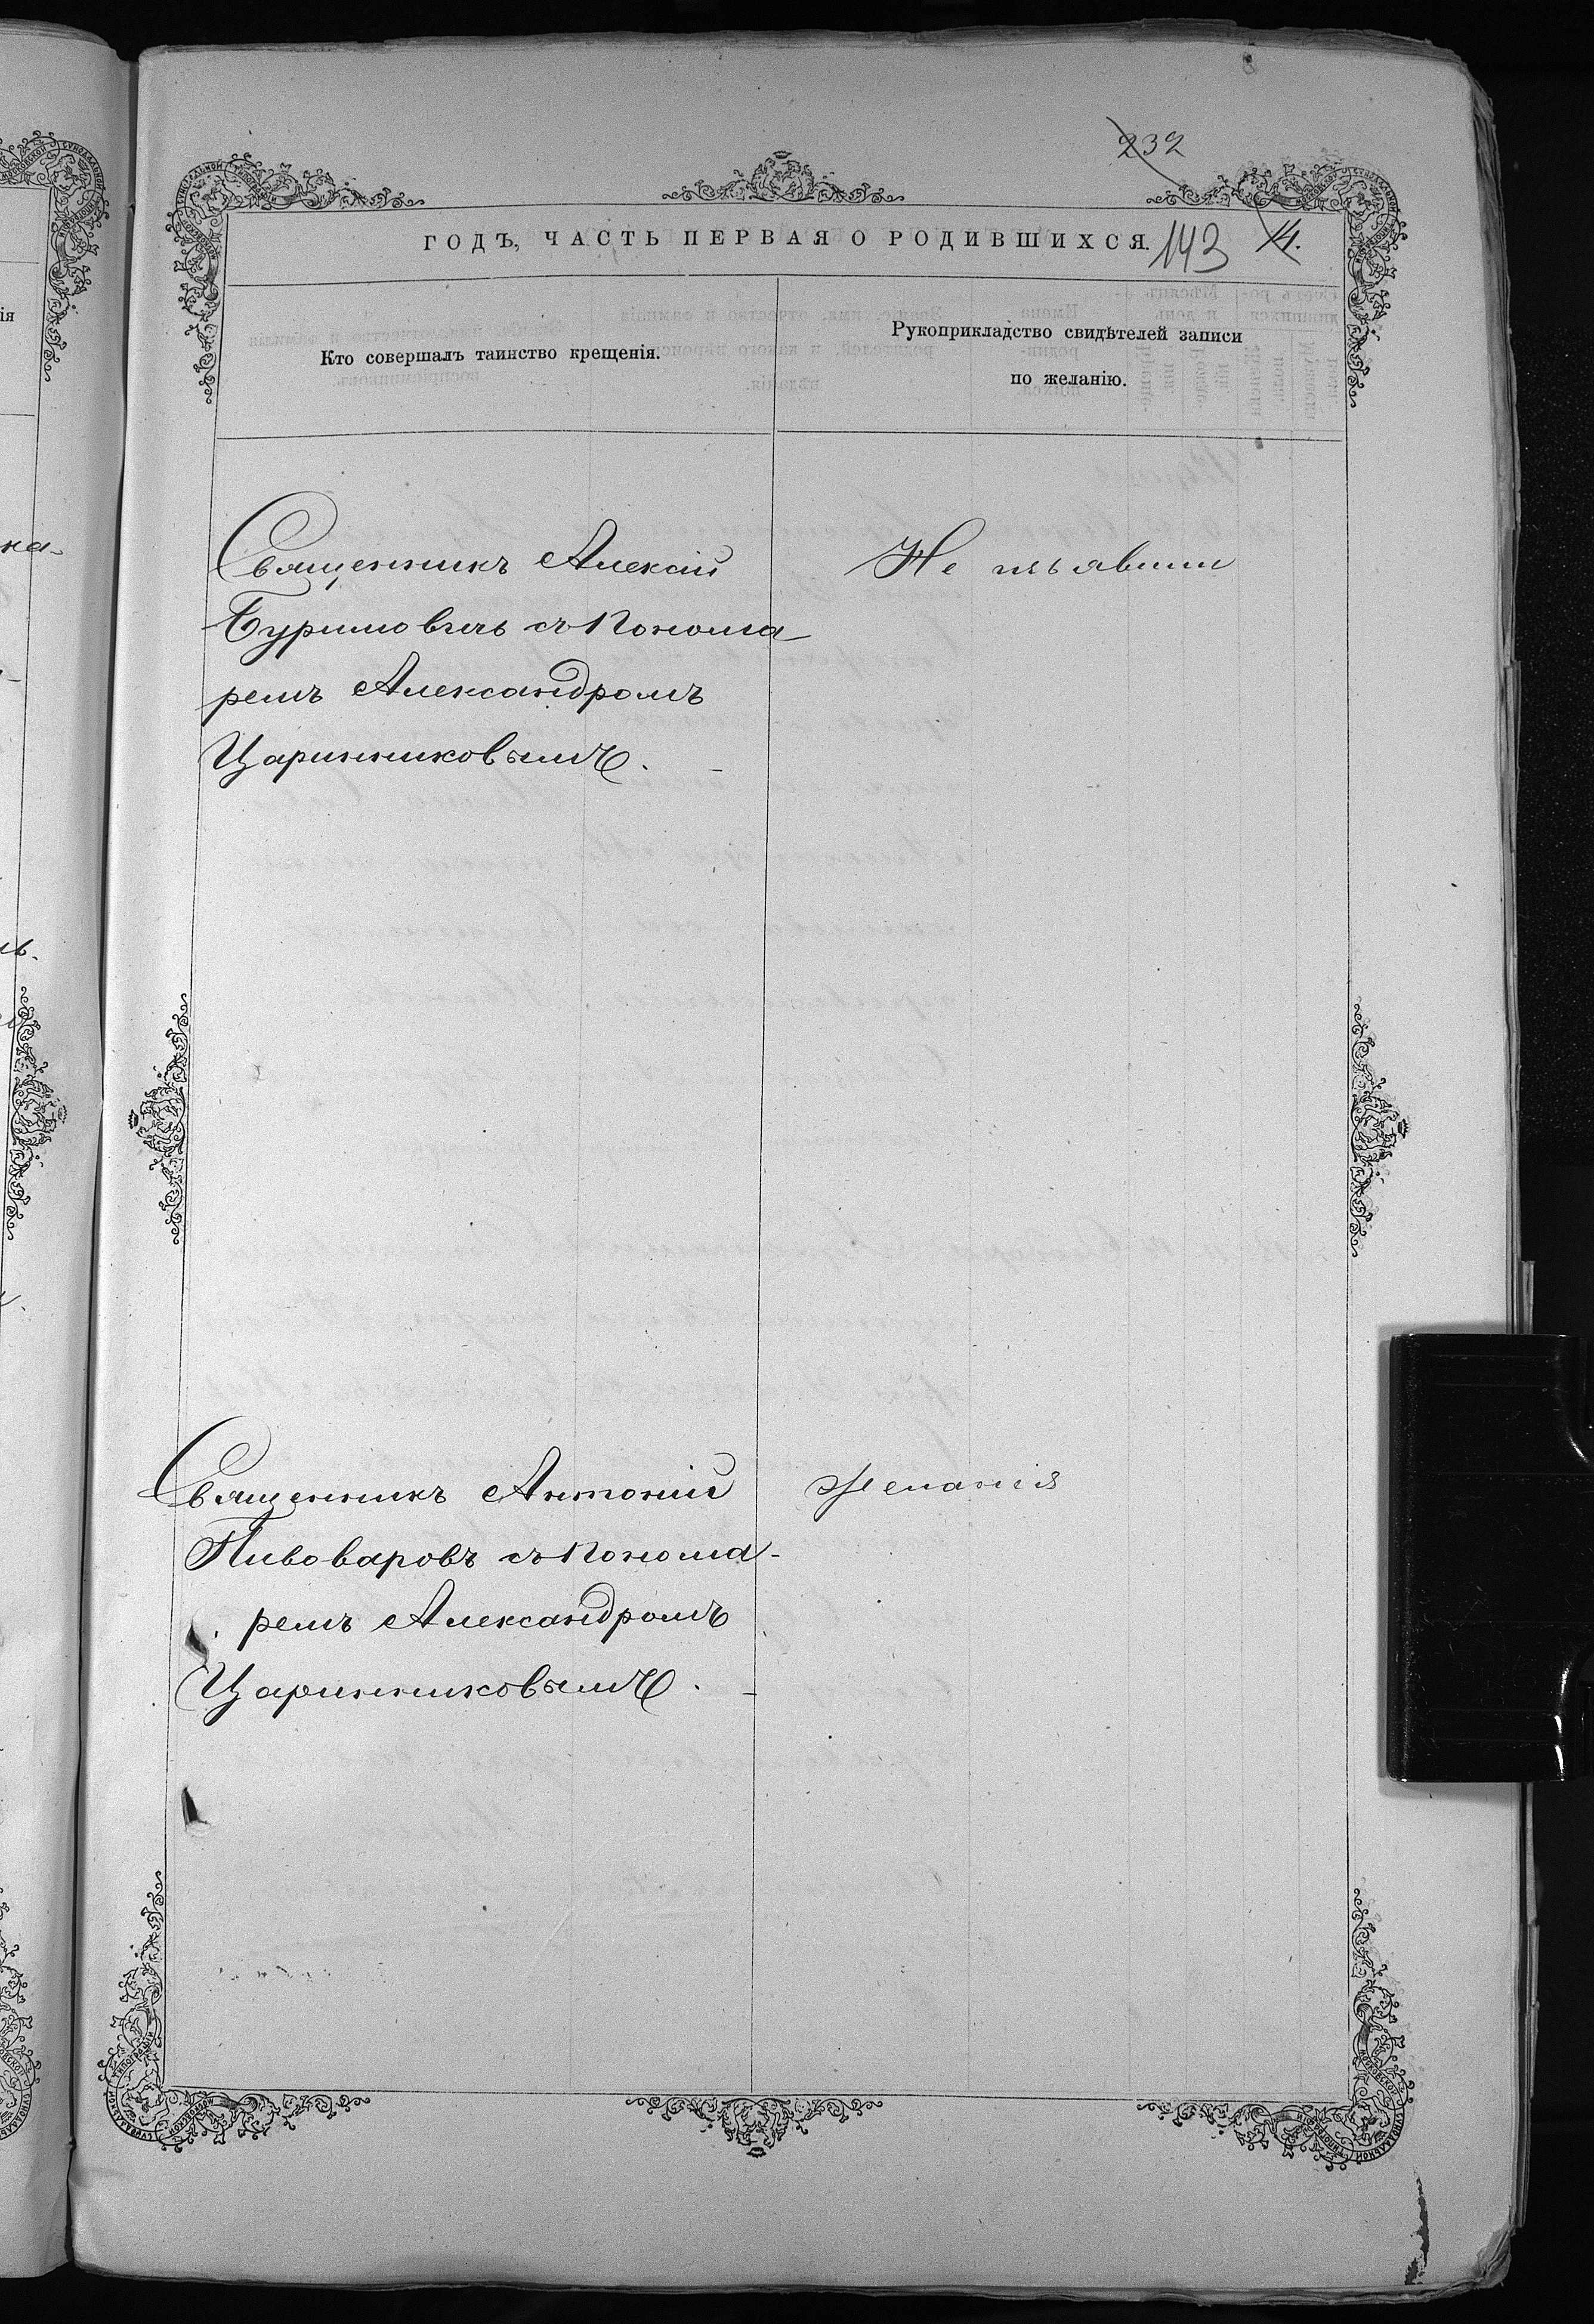 232
ГОДЪ, ЧАСТЬ ПЕРВАЯ О РОДИВШИХСЯ.
143
14.
Кто совершалъ таинство крещенія.
Рукоприкладство свидѣтелей записи
по желанію.
Священникъ Алексій
Буримовичъ съ Понома-
ремъ Александромъ
Царинниковымъ.
Не изъявили
Священникъ Антоній
Пивоваровъ съ Понома-
ремъ Александромъ
Царинниковымъ.
желанія